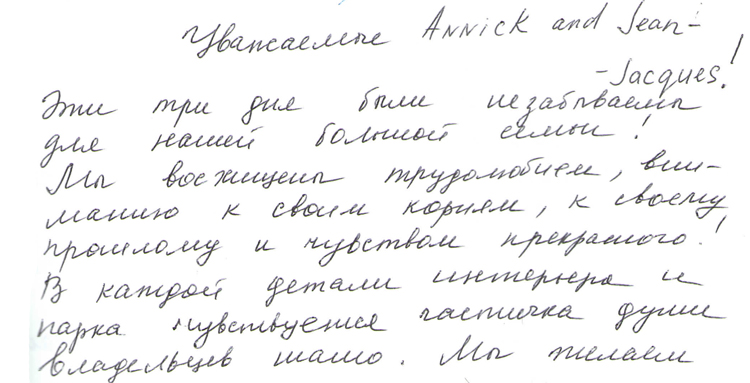 Уважаемые Annick and Jean-
-Jacques!
Эти три дня были незабываемы
для нашей большой семьи!
Мы восхищены трудолюбием, вни-
манию к своим корням, к своему
прошлому и чувством прекрасного!
В каждой детали интерьера и
парка чувствуется частичка души
владельцев шато. Мы желаем